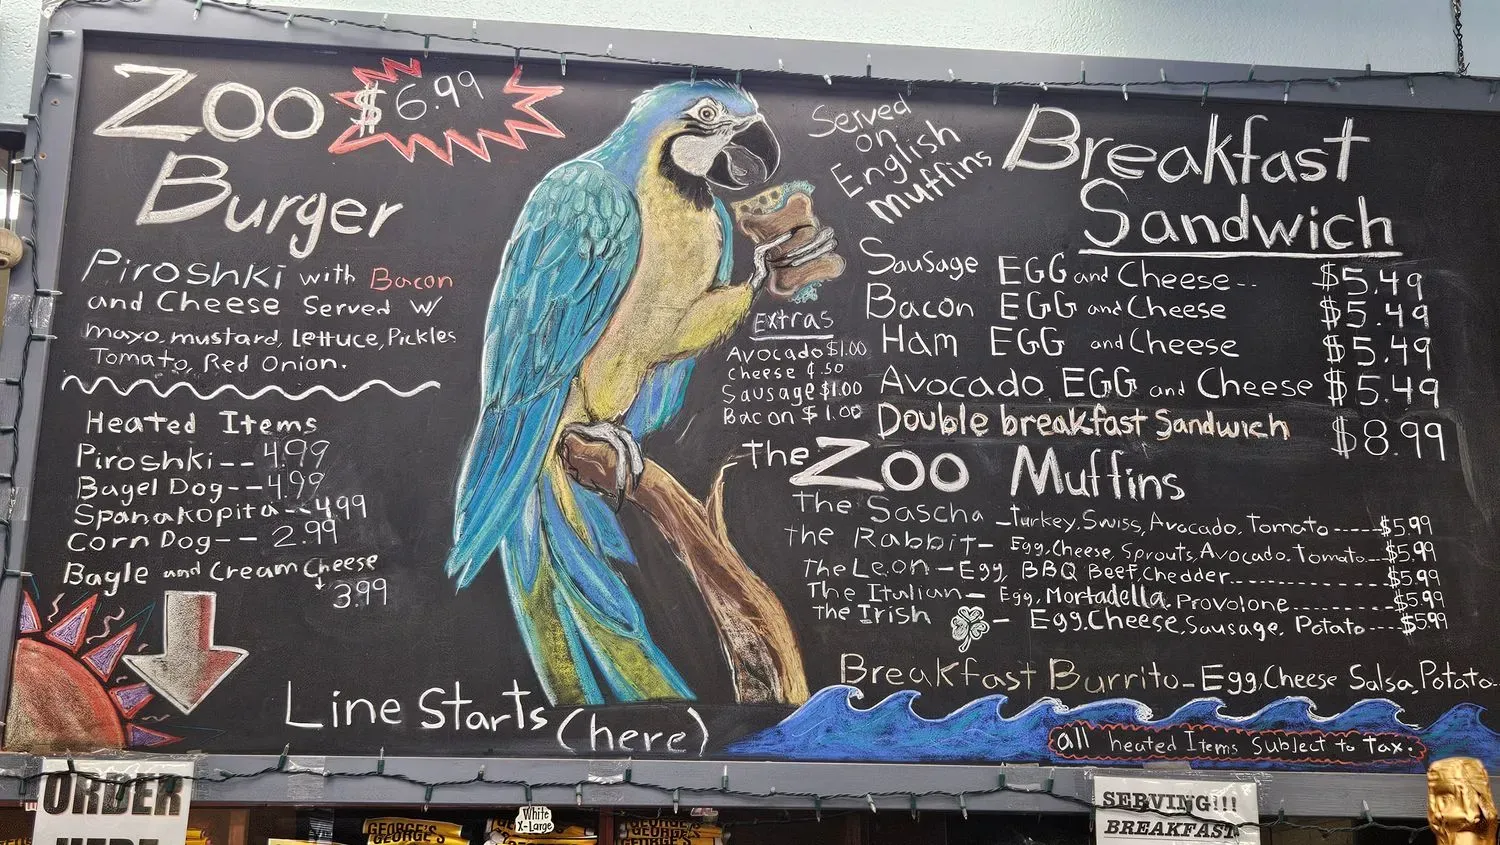 Zoo $6.99
Burger
Piroshki with Bacon
and Cheese Served w/
mayo, mustard, Lettuce, Pickles
Tomato, Red Onion.
Heated Items
Piroshki-- 4.99
Bagel Dog--4.99
Spanakopita--4.99
Corn Dog-- 2.99
Bagle and Cream Cheese
3.99
Line Starts (here)
Served
on
English
muffins
Extras
Avocado $1.00
cheese $.50
Sausage $1.00
Bacon $1.00
Breakfast
Sandwich
Sausage EGG and Cheese-- $5.49
Bacon EGG and Cheese $5.49
Ham EGG and Cheese $5.49
Avocado, EGG and Cheese $5.49
Double breakfast Sandwich $8.99
the Zoo Muffins
The Sascha -Turkey, Swiss, Avocado, Tomato-----$5.99
the Rabbit- Egg, Cheese, Sprouts, Avocado, Tomato---$5.99
the Leon-Egg, BBQ Beef, Chedder------------$5.99
The Italian- Egg, Mortadella, Provolone--------$5.99
the Irish - Egg, Cheese, Sausage, Potato----$5.99
Breakfast Burrito-Egg, Cheese Salsa, Potato--
all heated Items Subject to Tax.
ORDER
HERE
White
X-Large
GEORGE'S
GEORGE'S
GEORGE'S
GEORGE'S
SERVING!!!
BREAKFAST